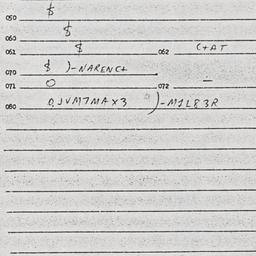 050 $
060 $
061 $ 062 C+AT
070 $ )-NARENC+
071 O 072 —
080 0,JVM7MAX3 )-M1L83R